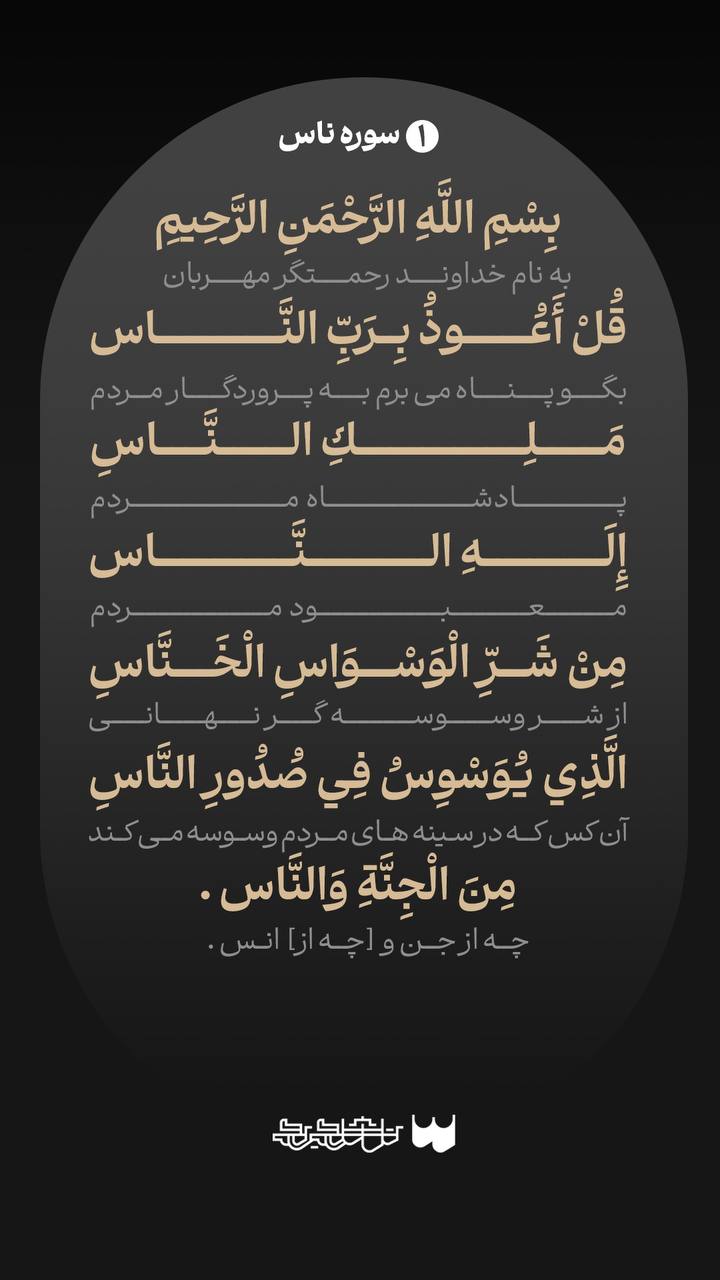 ۱ سوره ناس
بِسْمِ اللَّهِ الرَّحْمَنِ الرَّحِيمِ
به نام خداوند رحمتگر مهربان
قُلْ أَعُوذُ بِرَبِّ النَّاس
بگو پناه می برم به پروردگار مردم
مَلِكِ النَّاسِ
پادشاه مردم
إِلَهِ النَّاس
معبود مردم
مِنْ شَرِّ الْوَسْوَاسِ الْخَنَّاسِ
از شر وسوسه گر نهانی
الَّذِي يُوَسْوِسُ فِي صُدُورِ النَّاسِ
آن کس که در سینه های مردم وسوسه می کند
مِنَ الْجِنَّةِ وَالنَّاس .
چه از جن و [چه از] انس .